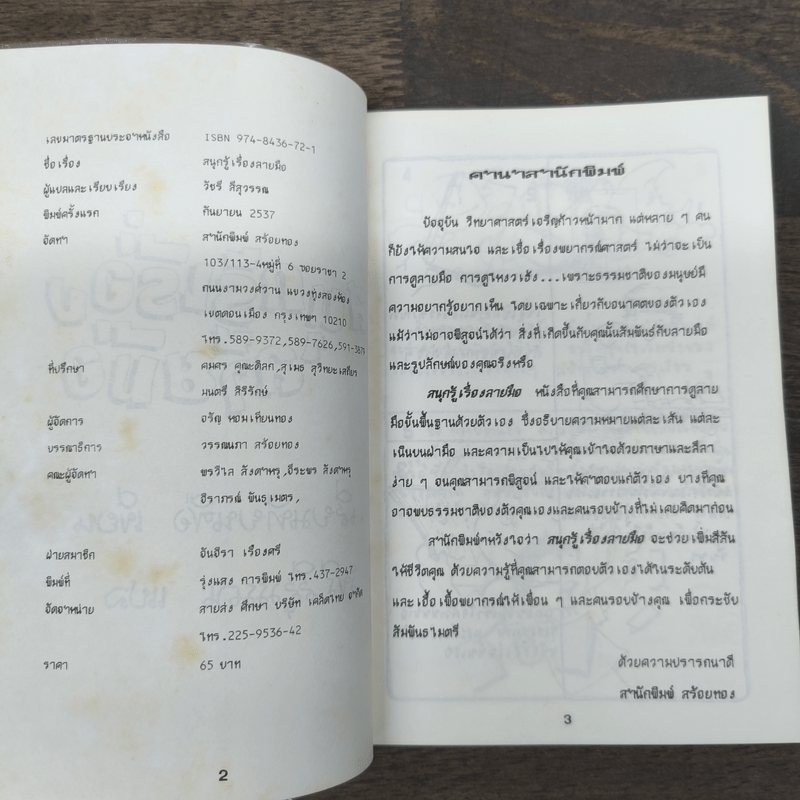 เลขมาตรฐานประจำหนังสือ ISBN 974-8436-72-1
ชื่อเรื่อง สนุกรู้เรื่องลายมือ
ผู้แปลและเรียบเรียง วัชรี สีสุวรรณ
พิมพ์ครั้งแรก กันยายน 2537
จัดทำ สำนักพิมพ์ สร้อยทอง
103/113-4หมู่ที่ 6 ซอยราชา 2
ถนนงามวงศ์วาน แขวงทุ่งสองห้อง
เขตดอนเมือง กรุงเทพฯ 10210
โทร.589-9372,589-7626,591-3879
ที่ปรึกษา คมศร คุณะดิลก,สุเมธ สุวิทยะเสถียร
มนตรี สิริรักษ์
ผู้จัดการ จรัญ หอมเทียนทอง
บรรณาธิการ วรรณนภา สร้อยทอง
คณะผู้จัดทำ พรวิไล สังตาหรุ,ธีระพร สังตาหรุ
ธิราภรณ์ พันธุเมตร,
ฝ่ายสมาชิก จันธิรา เรืองศรี
พิมพ์ที่ รุ่งแสง การพิมพ์ โทร.437-2947
จัดจำหน่าย สายส่ง ศึกษา บริษัท เคล็ดไทย จำกัด
โทร.225-9536-42
ราคา 65 บาท
2
คำนำสำนักพิมพ์
ปัจจุบัน วิทยาศาสตร์เจริญก้าวหน้ามาก แต่หลาย ๆ คน
ก็ยังให้ความสนใจ และเชื่อเรื่องพยากรณ์ศาสตร์ ไม่ว่าจะเป็น
การดูลายมือ การดูโหงวเฮ้ง...เพราะธรรมชาติของมนุษย์มี
ความอยากรู้อยากเห็น โดยเฉพาะเกี่ยวกับอนาคตของตัวเอง
แม้ว่าไม่อาจพิสูจน์ได้ว่า สิ่งที่เกิดขึ้นกับคุณนั้นสัมพันธ์กับลายมือ
และรูปลักษณ์ของคุณจริงหรือ
สนุกรู้เรื่องลายมือ หนังสือที่คุณสามารถศึกษาการดูลาย
มือขั้นพื้นฐานด้วยตัวเอง ซึ่งอธิบายความหมายแต่ละเส้น แต่ละ
เนินบนฝ่ามือ และความเป็นไปให้คุณเข้าใจด้วยภาษาและลีลา
ง่าย ๆ จนคุณสามารถพิสูจน์ และให้คำตอบแก่ตัวเอง บางทีคุณ
อาจพบธรรมชาติของตัวคุณเองและคนรอบข้างที่ไม่เคยคิดมาก่อน
สำนักพิมพ์ฯหวังใจว่า สนุกรู้เรื่องลายมือ จะช่วยเพิ่มสีสัน
ให้ชีวิตคุณ ด้วยความรู้ที่คุณสามารถตอบตัวเองได้ในระดับต้น
และเอื้อเพื้อพยากรณ์ให้เพื่อน ๆ และคนรอบข้างคุณ เพื่อกระชับ
สัมพันธไมตรี
ด้วยความปรารถนาดี
สำนักพิมพ์ สร้อยทอง
3